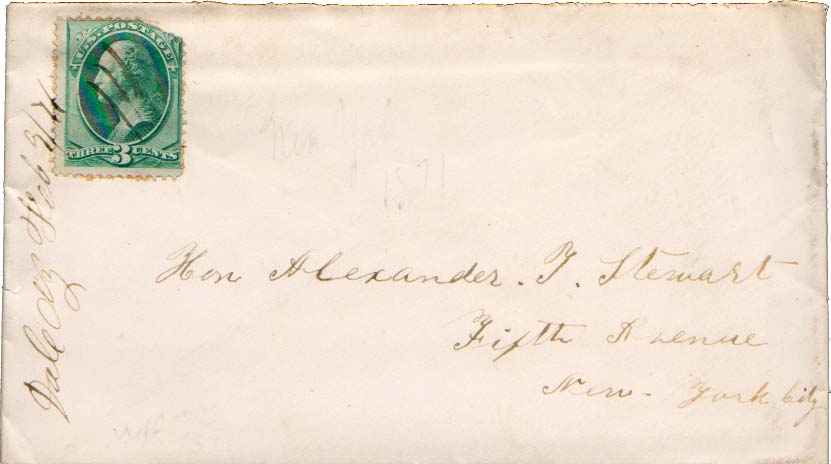 U.S. POSTAGE
THREE 3 CENTS
Feb
1871
Hon Alexander. T. Stewart
Fifth Avenue
New-York City